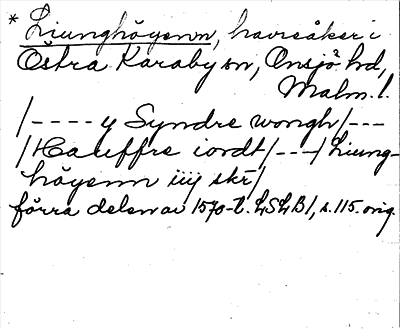 * Liunghögenn, havreåker i
Östra Karaby sn, Onsjö hd,
Malm. l.
/- - - - y Syndre wongh/- - -
/Haueffre iordt/- - -/Liung-
högenn iiij skr/
förra delen av 1570-t. LSLB1, s. 115. orig.